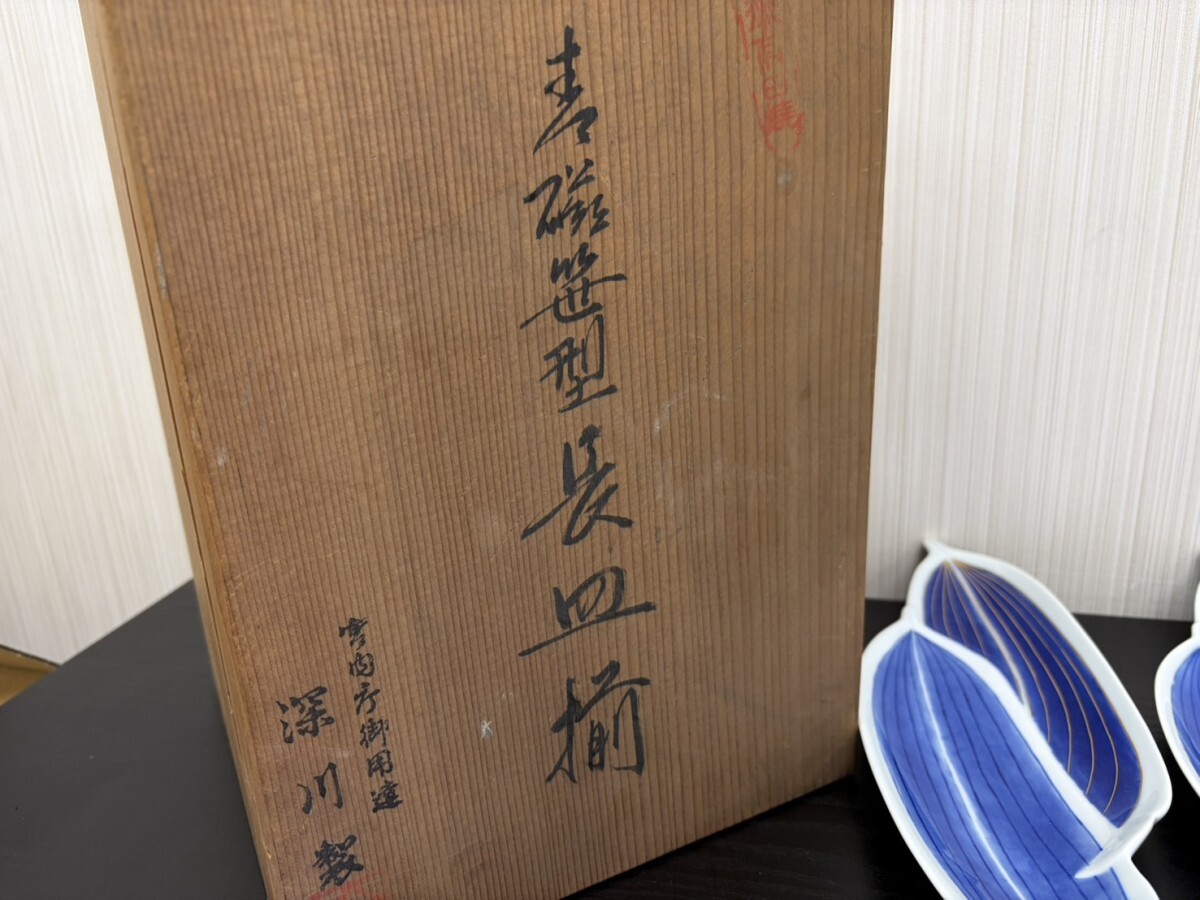 青磁笹型長皿揃
宮内庁御用達
深川製